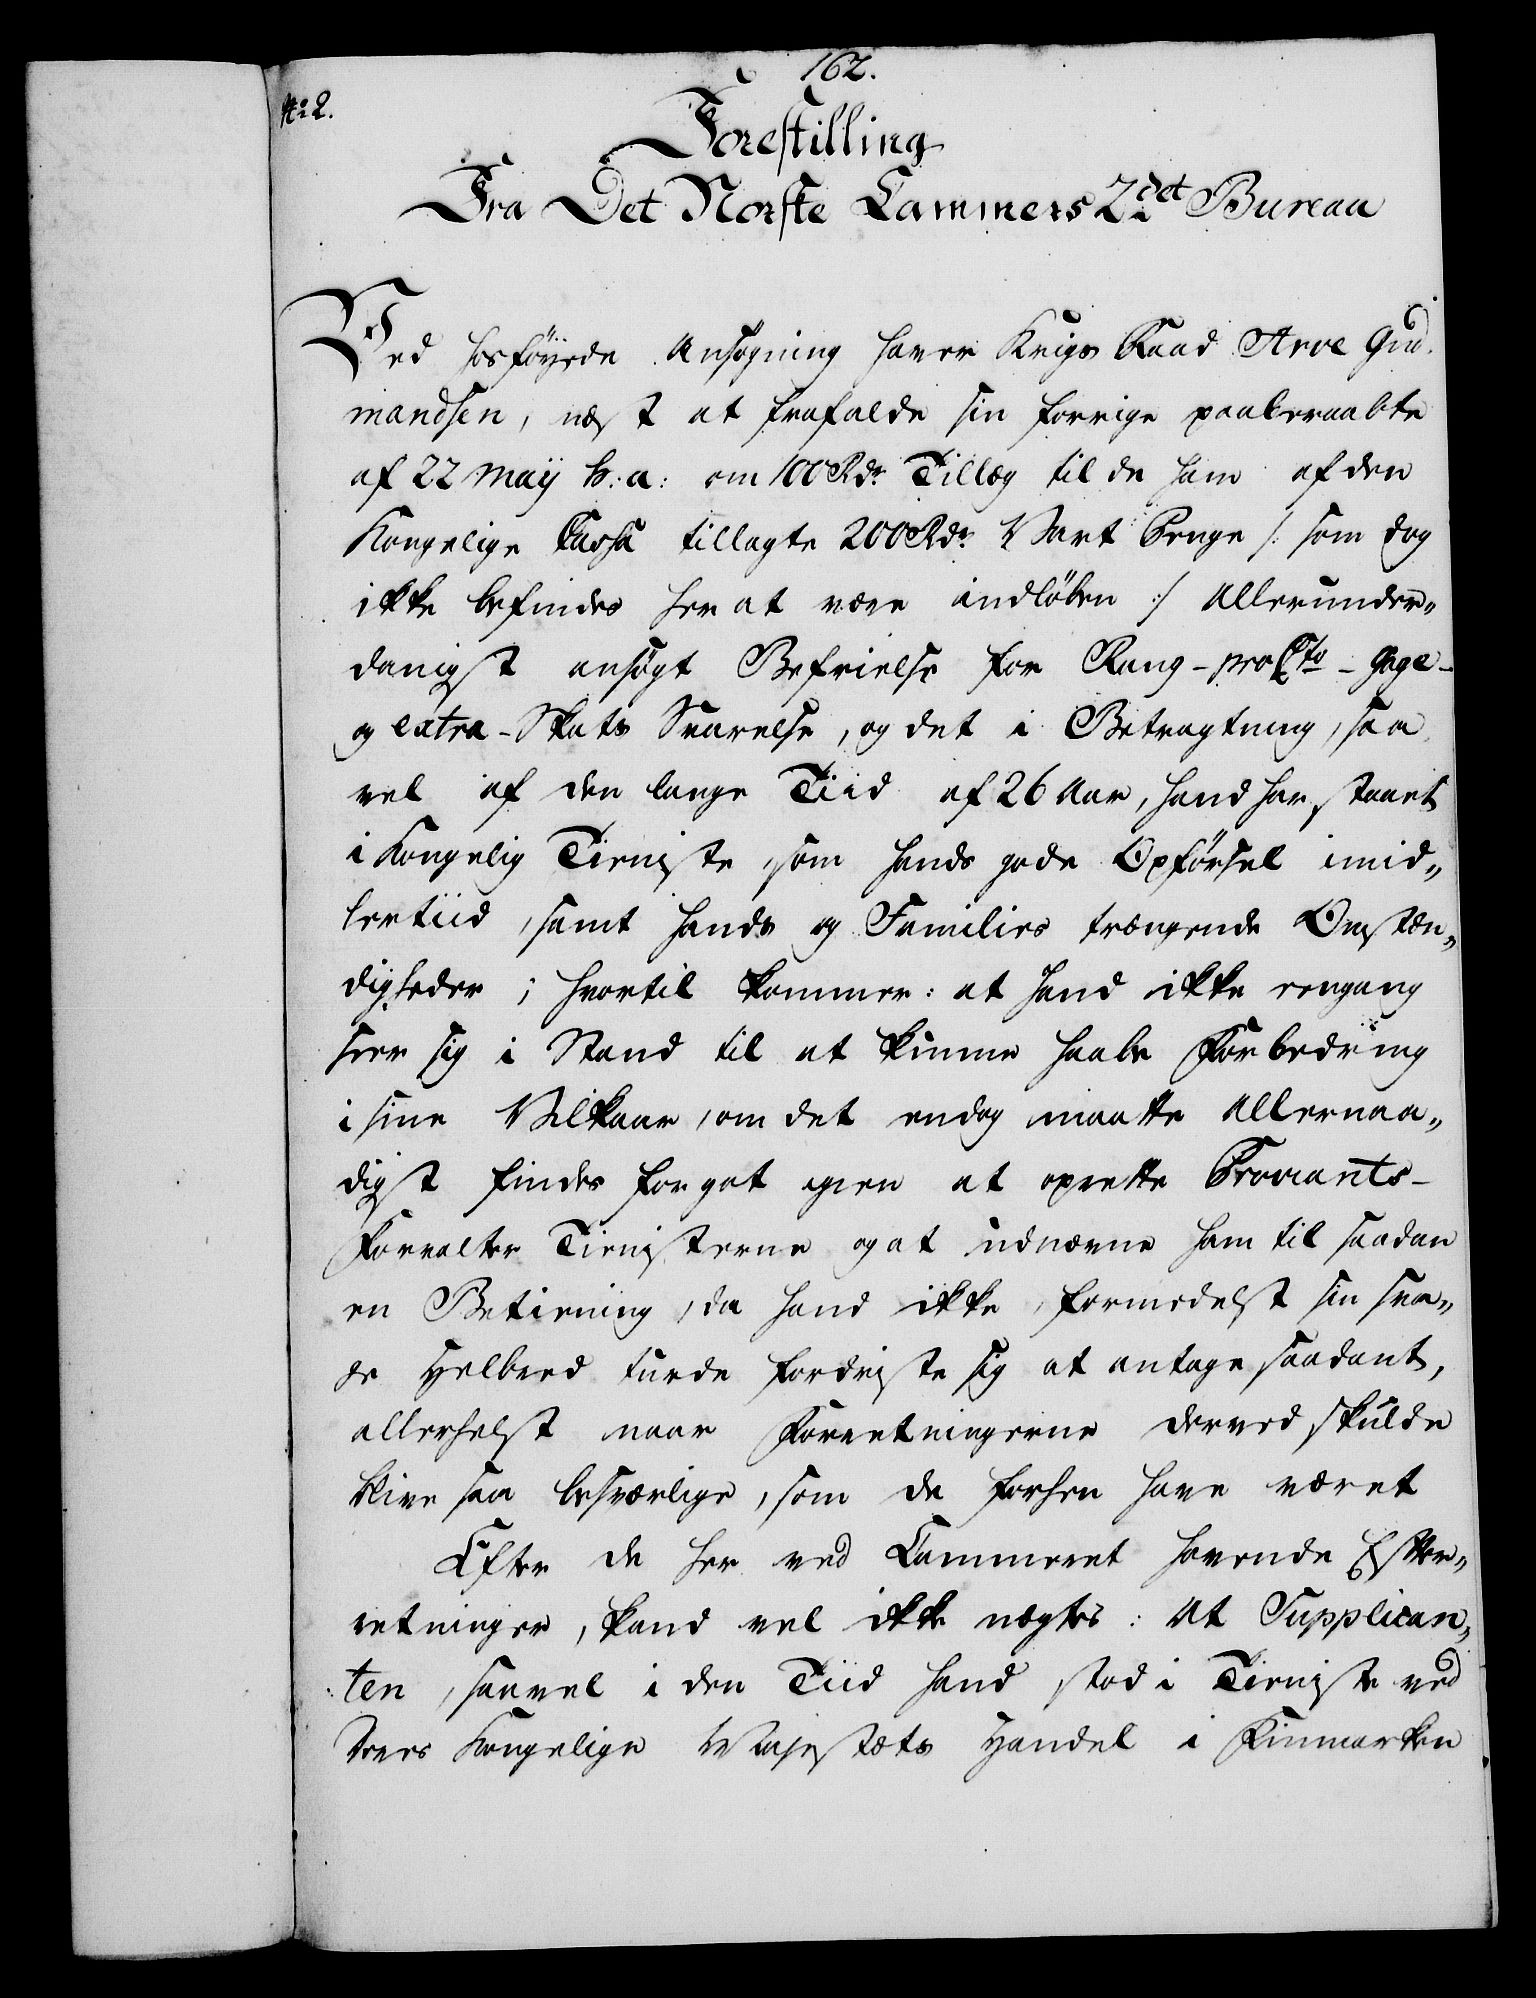 162.
No: 2.
Forestilling
Fra Det Norske Cammers 2det Bureau
Ved hosföyede Ansøgning haver Krigs Raad Arve Gud-
mandsen, næst at frafalde sin forrige paaberaabte
af 22 Maÿ h: a: om 100 Rdr Tillæg til de ham af den
Kongelige Cassa tillagte 200 Rdr Vart Penge /: som dog
ikke befindes her at være indløben :/ Allerunder„
danigst ansøgt Befrielse for Rang- pro Cto - Gage-
og extra-Skats Svarelse, og det i Betragtning, saa
vel af den lange Tiid af 26 Aar, hand har staaet
i Kongelig Tieniste, som hands gode Opførsel imid„
lertiid, samt hands og Families trængende Omstæn„
digheder; hvortil kommer: at hand ikke eengang
seer sig i Stand til at kunne haabe Forbedring
i sine Vilkaar, om det endog maatte Allernaa„
digst findes for got igien at oprette Proviants-
Forvalter Tienisterne og at udnævne ham til saadan
en Betiening, da hand ikke, formedelst sin sva„
ge Helbred turde fordriste sig at antage saadant,
allerhelst naar Forretningerne derved skulde
blive saa besværlige, som de forhen have været
Efter de her ved Cammeret havende Efter„
retninger, kand vel ikke nægtes: At Supplican„
ten, saavel i den Tiid hand stod i Tieniste ved
Deres Kongelige Majestæts Handel i Finmarken